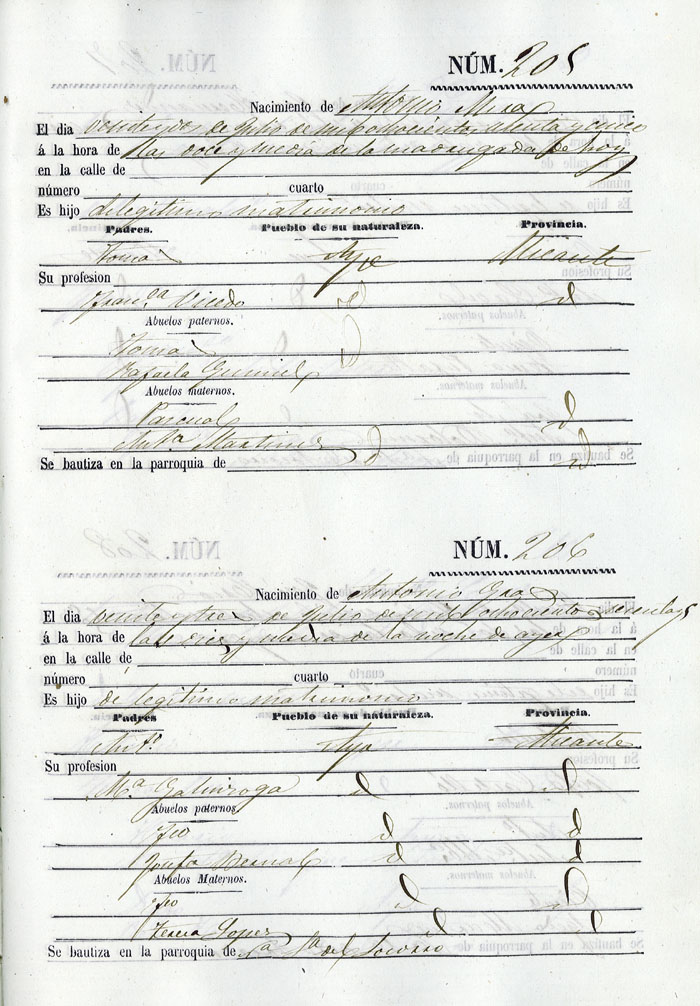 NÚM. 205
Nacimiento de Antonio
El dia veinte y dos de Julio de mil ochocientos
á la hora de las doce y media de la madrugada de hoy
en la calle de
número cuarto
Es hijo de legitimo matrimonio
Padres. Pueblo de su naturaleza. Provincia.
Tomas Alicante
Su profesion
Fran.ca d d
Abuelos paternos.
Tomas d
Rafaela
Abuelos maternos.
Pascual d
Ant.a Martinez d d
Se bautiza en la parroquia de
NÚM. 206
Nacimiento de Antonio
El dia veinte y tres de Julio de mil ochocientos
á la hora de las diez y media de la noche de ayer
en la calle de
número cuarto
Es hijo de legitimo matrimonio
Padres Pueblo de su naturaleza. Provincia.
Ant.o Alicante
Su profesion
M.a d d
Abuelos paternos
Fco d d
Josefa Bernal d d
Abuelos Maternos.
Fco d d
Teresa Lopez d d
Se bautiza en la parroquia de Socorro